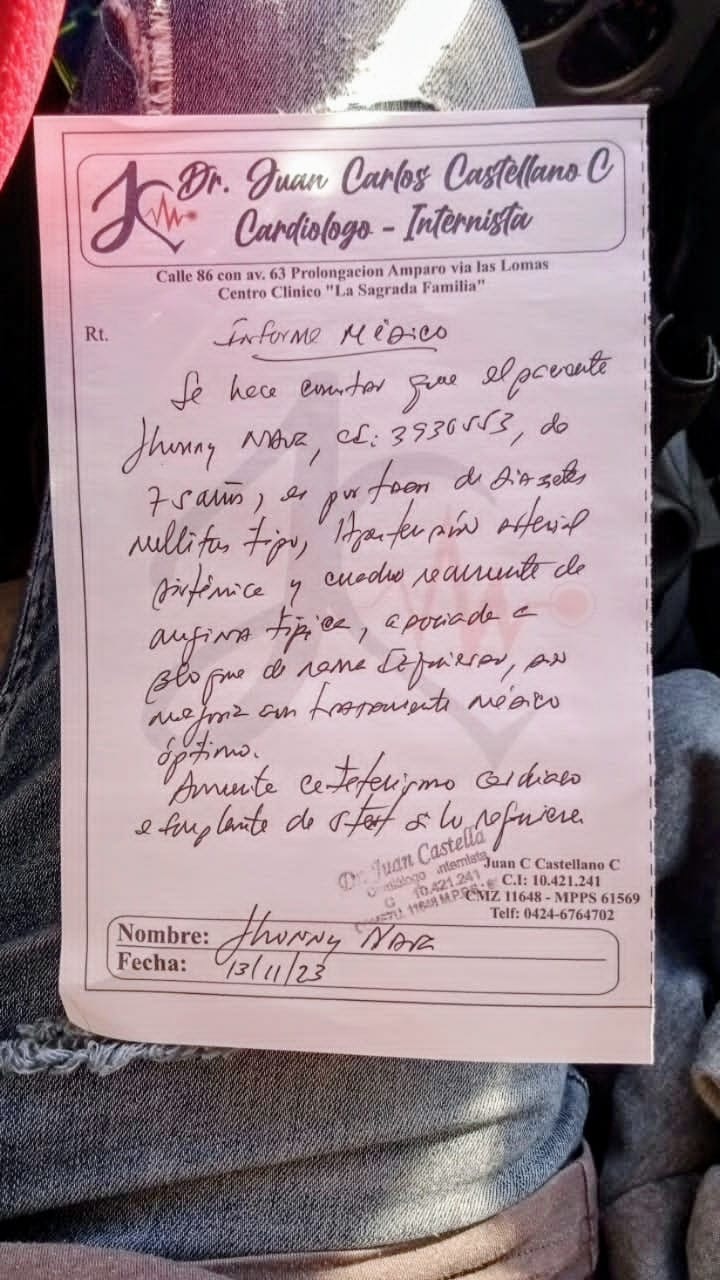 Dr. Juan Carlos Castellano C
Cardiologo - Internista
Calle 86 con av. 63 Prolongacion Amparo via las Lomas
Centro Clinico "La Sagrada Familia"
Rt.
Informe Médico
Se hace constar que el paciente
Jhonny NAVA, CI: 3930553, de
75 años, es portador de Diabetes
Mellitus tipo, Hipertensión arterial
sistémica y cuadro recurrente de
angina típica, asociada a
Bloqueo de rama Izquierda, sin
mejoría con tratamiento médico
óptimo.
Amerita cateterismo cardiaco
e Implante de stent si lo requiere.
Dr. Juan Castella
Cardiólogo internista
C 10.421.241
11648 M.P.P.S.
Juan C Castellano C
C.I: 10.421.241
CMZ 11648 - MPPS 61569
Telf: 0424-6764702
Nombre: Jhonny NAVA
Fecha: 13/11/23